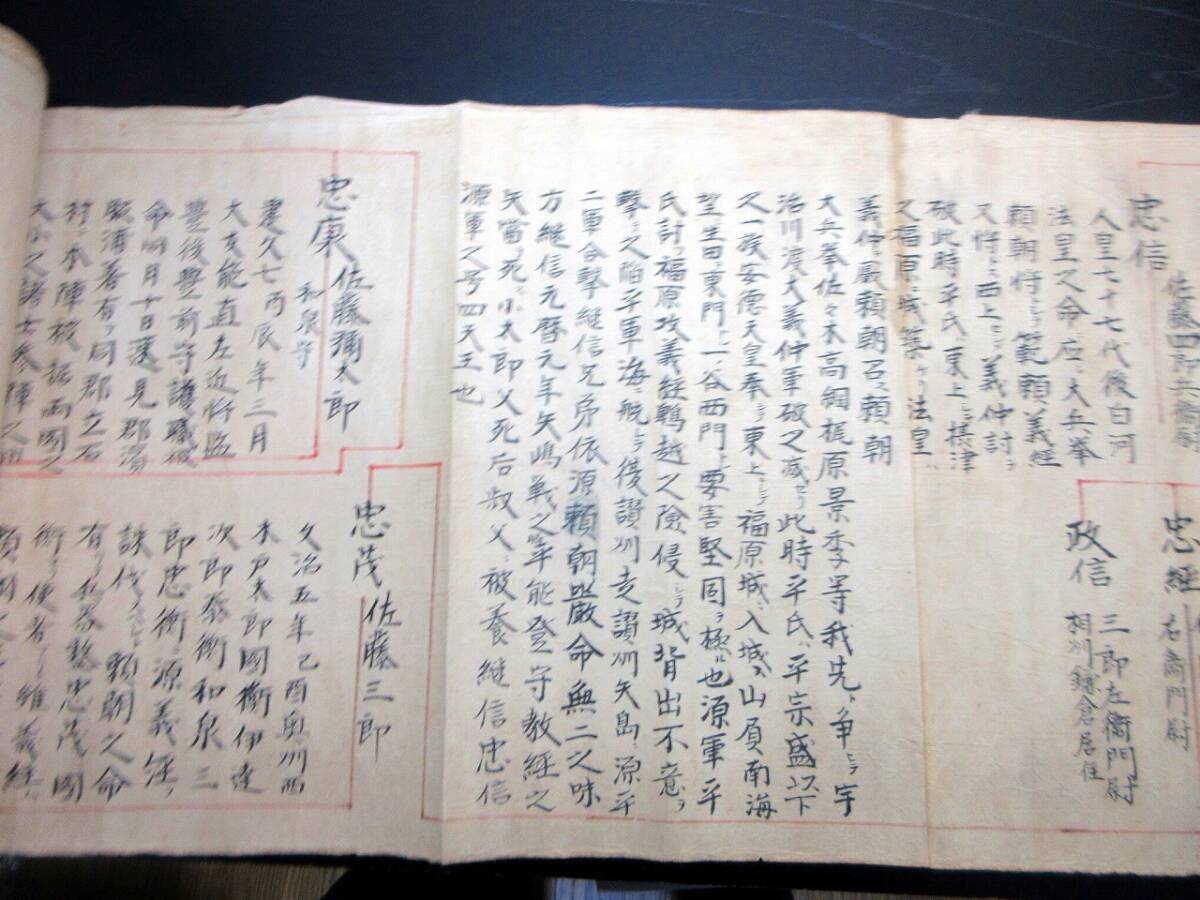 忠信
佐藤四郎兵衛尉
人皇七十七代後白河
法皇之命応シ大兵挙
頼朝将トシテ範頼義経
又将トシ西上シテ義仲討ヲ
破此時平氏ハ東上シテ摂津
之福原ニ城築ケリ法皇ハ
義仲ヲ厭頼朝召ス頼朝
大兵挙佐々木高綱梶原景季等我先ニ争ヒテ宇
治川渡大義仲軍破之滅セリ此時平氏ハ平宗盛以下
之一族安徳天皇奉シテ東上シテ福原城ニ入城ス山負南海
望生田東門トシ一ノ谷西門トシ要害堅固ヲ極ル也源軍平
氏討ヲ福原攻義経鵯越之険侵シテ城背出不意ヲ
撃ツ之陷平軍海ニ脱シテ後讃州走讃州矢島ニ源平
二軍合撃継信兄弟依源頼朝此厳命無二之味
方継信元暦元年矢嶋戦之竿能登守教経之
矢當テ死ス小太郎父死后叔父ニ被養継信忠信
源軍之号四天王也
忠経
右衛門尉
政信
三郎左衛門尉
相州鎌倉居住
忠康
佐藤彌太郎
和泉守
建久七丙辰年三月
大友能直左近将監
豊後豊前守護職被
命明月十日速見郡
着有ッ同郡立石
村ニ本陣被据両国之
大小之諸士参陣之
忠茂
佐藤三郎
文治五年己酉奥州西
木戸太郎國衡伊達
次郎泰衡和泉三
郎忠衡ハ源義経ヲ
誅伐スベシト頼朝之命
有リ
忠茂國
衡ノ使者トシ
義経ハ